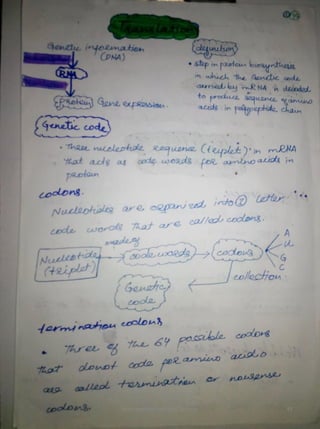 Translation
Genetic information
(DNA)
RNA
Protein Gene expression.
definition
• step in protein biosynthesis
in which the Genetic code
carried by mRNA is decoded
to produce sequence of amino
acids in polypeptide chain
Genetic code
• Three nucleotide sequence (triplet) in mRNA
that acts as code words for amino acids in
protein
codons.
Nucleotides are organised into ③ letter
code words that are called codons.
made of
Nucleotide
(triplet)
code words
codons
A
U
G
C
collection
Genetic
code
termination codons
• Three of the 64 possible codons
that donot code for amino acids
are called termination or nonsense
codons.